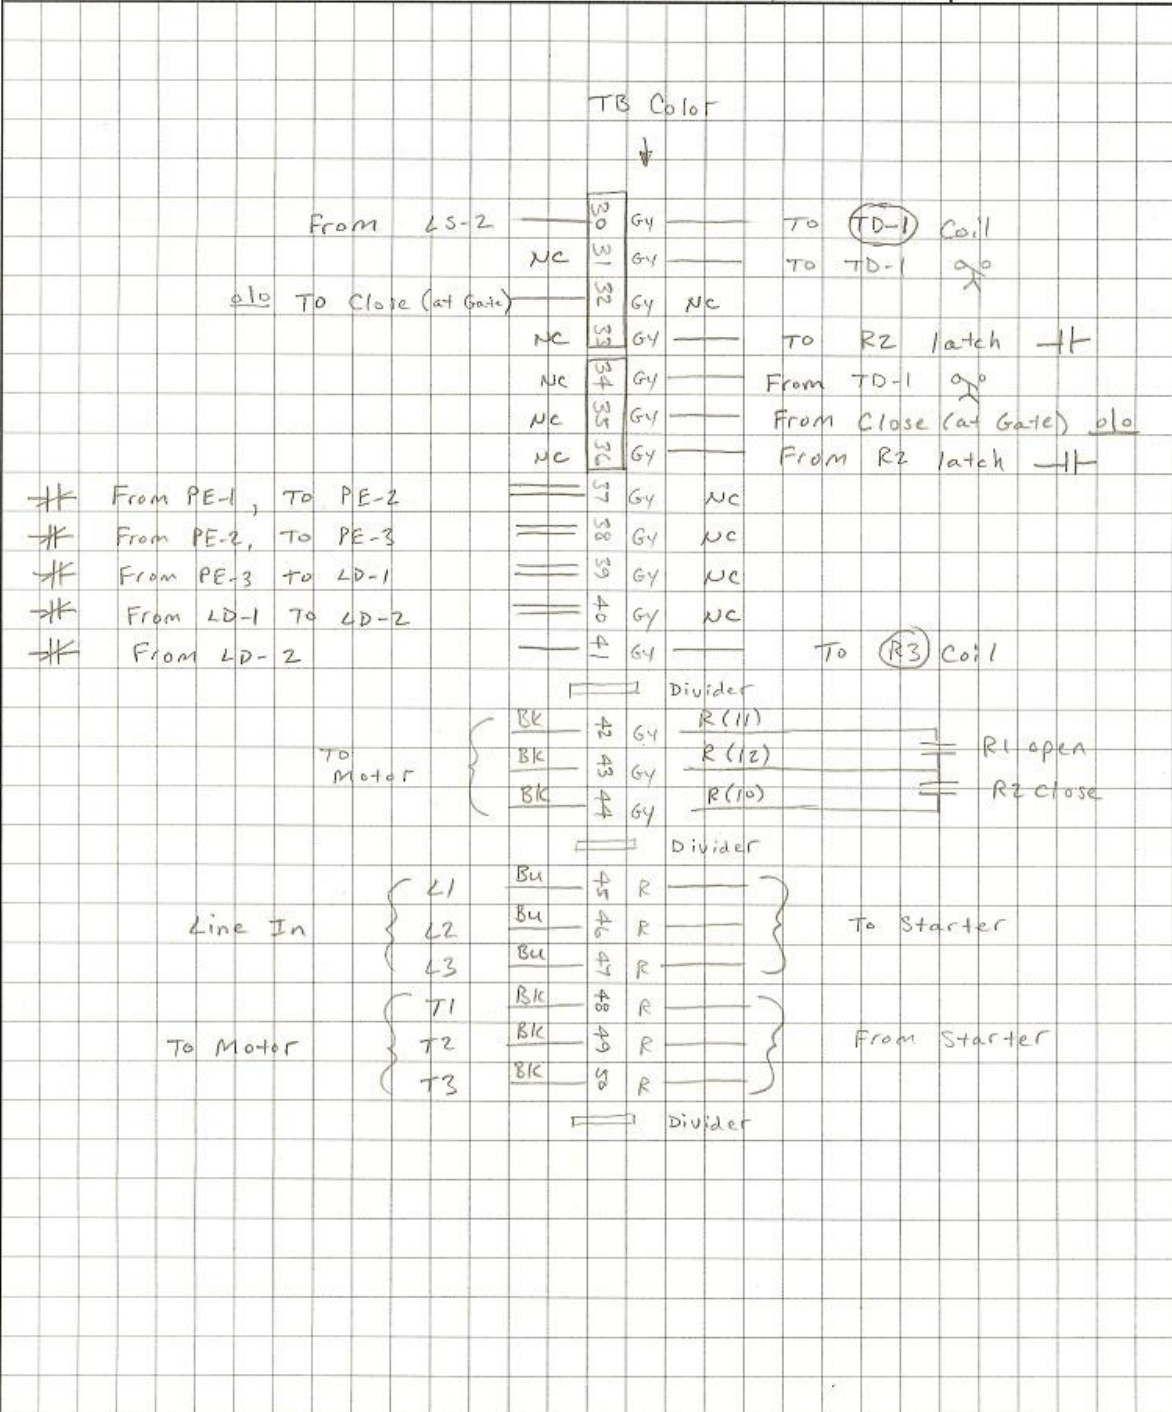 TB Color
From LS-2 30 Gy To TD-1 Coil
NC 31 Gy To TD-1
To Close (at Gate) 32 Gy NC
NC 33 Gy To R2 latch
NC 34 Gy From TD-1
NC 35 Gy From Close (at Gate)
NC 36 Gy From R2 latch
From PE-1, To PE-2 37 Gy NC
From PE-2, To PE-3 38 Gy NC
From PE-3 to LD-1 39 Gy NC
From LD-1 To LD-2 40 Gy NC
From LD-2 41 Gy To R3 Coil
Divider
Bk 42 Gy R(11)
To Motor Bk 43 Gy R(12) R1 open
Bk 44 Gy R(10) R2 close
Divider
L1 Bu 45 R
Line In L2 Bu 46 R To Starter
L3 Bu 47 R
T1 Bk 48 R
To Motor T2 Bk 49 R From Starter
T3 Bk 50 R
Divider